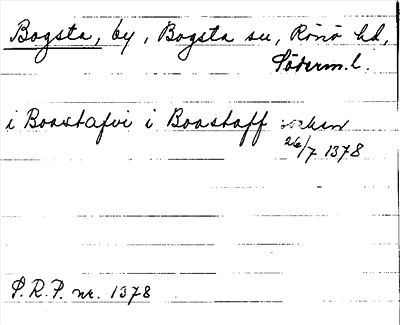 Bogsta, by, Bogsta sn, Rönö hd,
Söderm. l.
i Boastafvi i Boastaff sokn
26/7 1378
S.R.P. nr. 1378